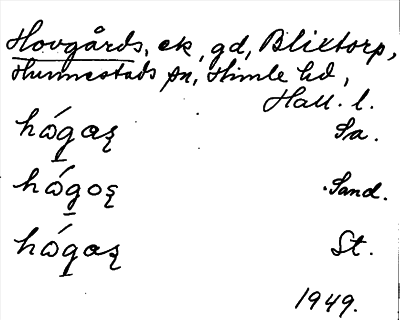 Hovgårds, ek, gd, Blixtorp,
Hunnestads sn, Himle hd,
Hall. l.
hǿgaʂ Sa.
hǿgoʂ Sand.
hǿgaʂ St.
1949.